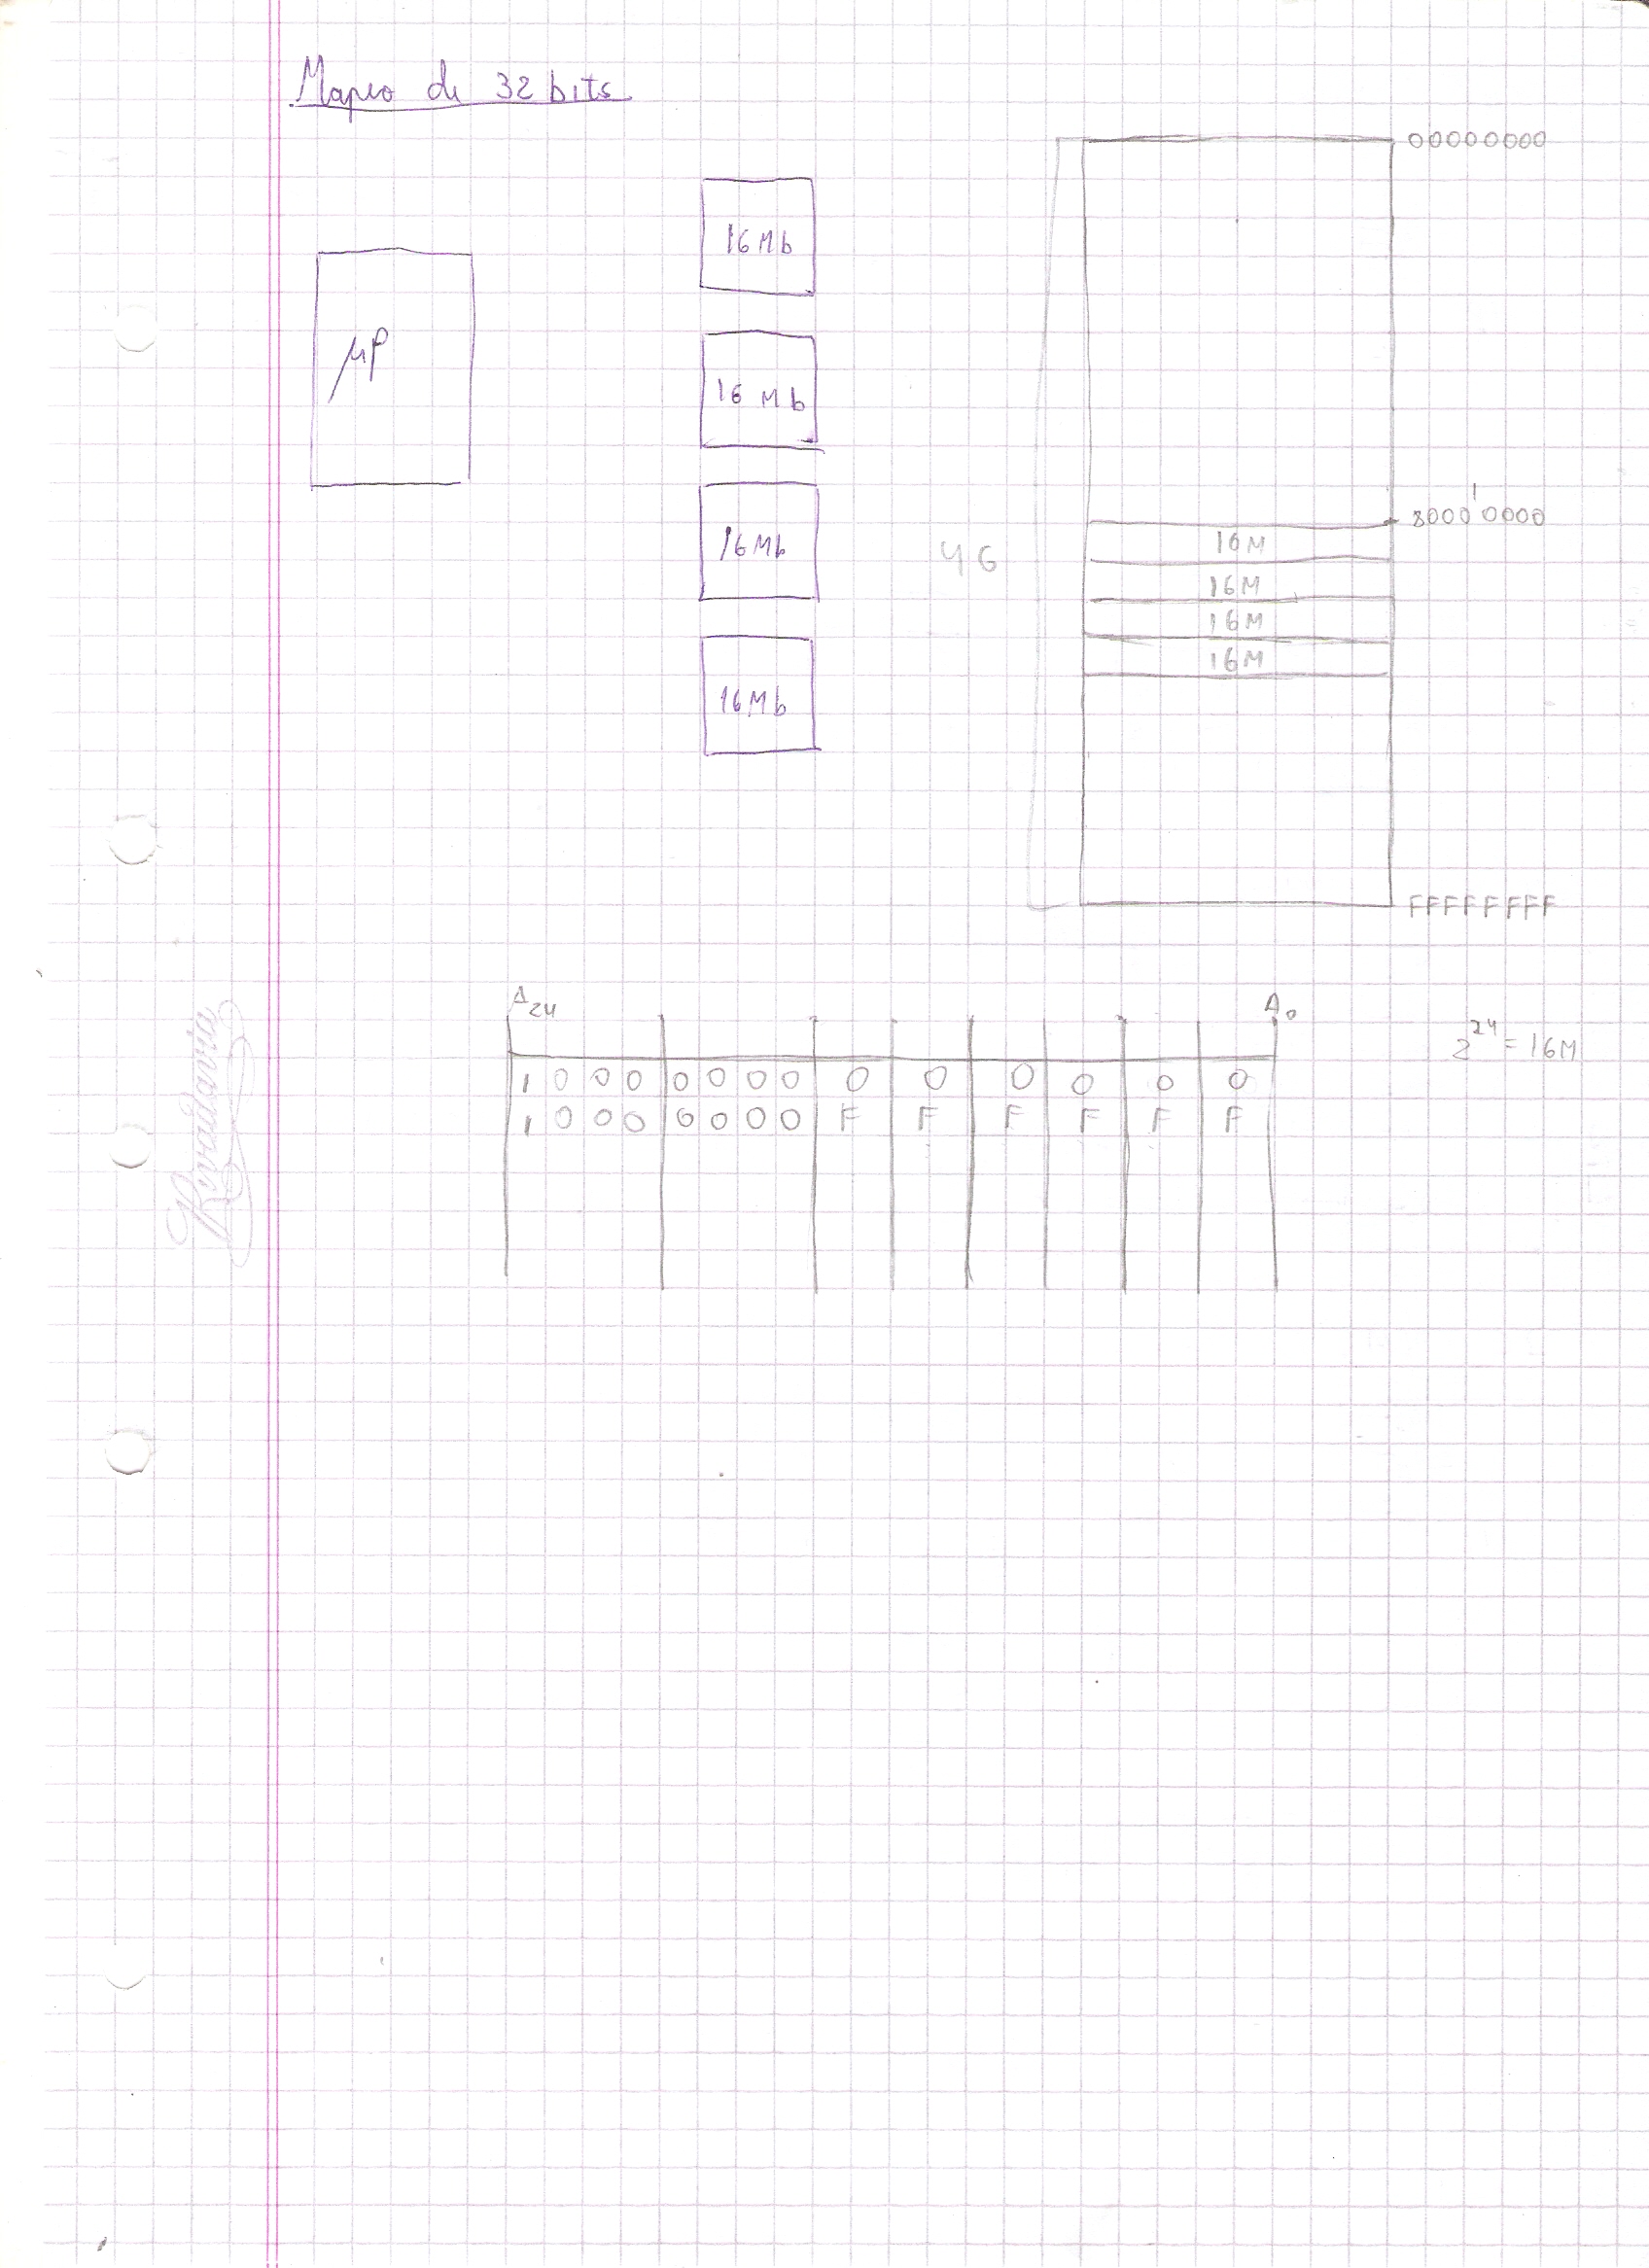 Mapeo de 32 bits
00000000
16Mb
μP
16 Mb
8000'0000
16M
16Mb
4G
16M
16M
16M
16Mb
FFFFFFFF
A24 A0
2^24 = 16M
1 0 0 0 0 0 0 0 0 0 0 0 0 0
1 0 0 0 0 0 0 0 F F F F F F
Rivadavia